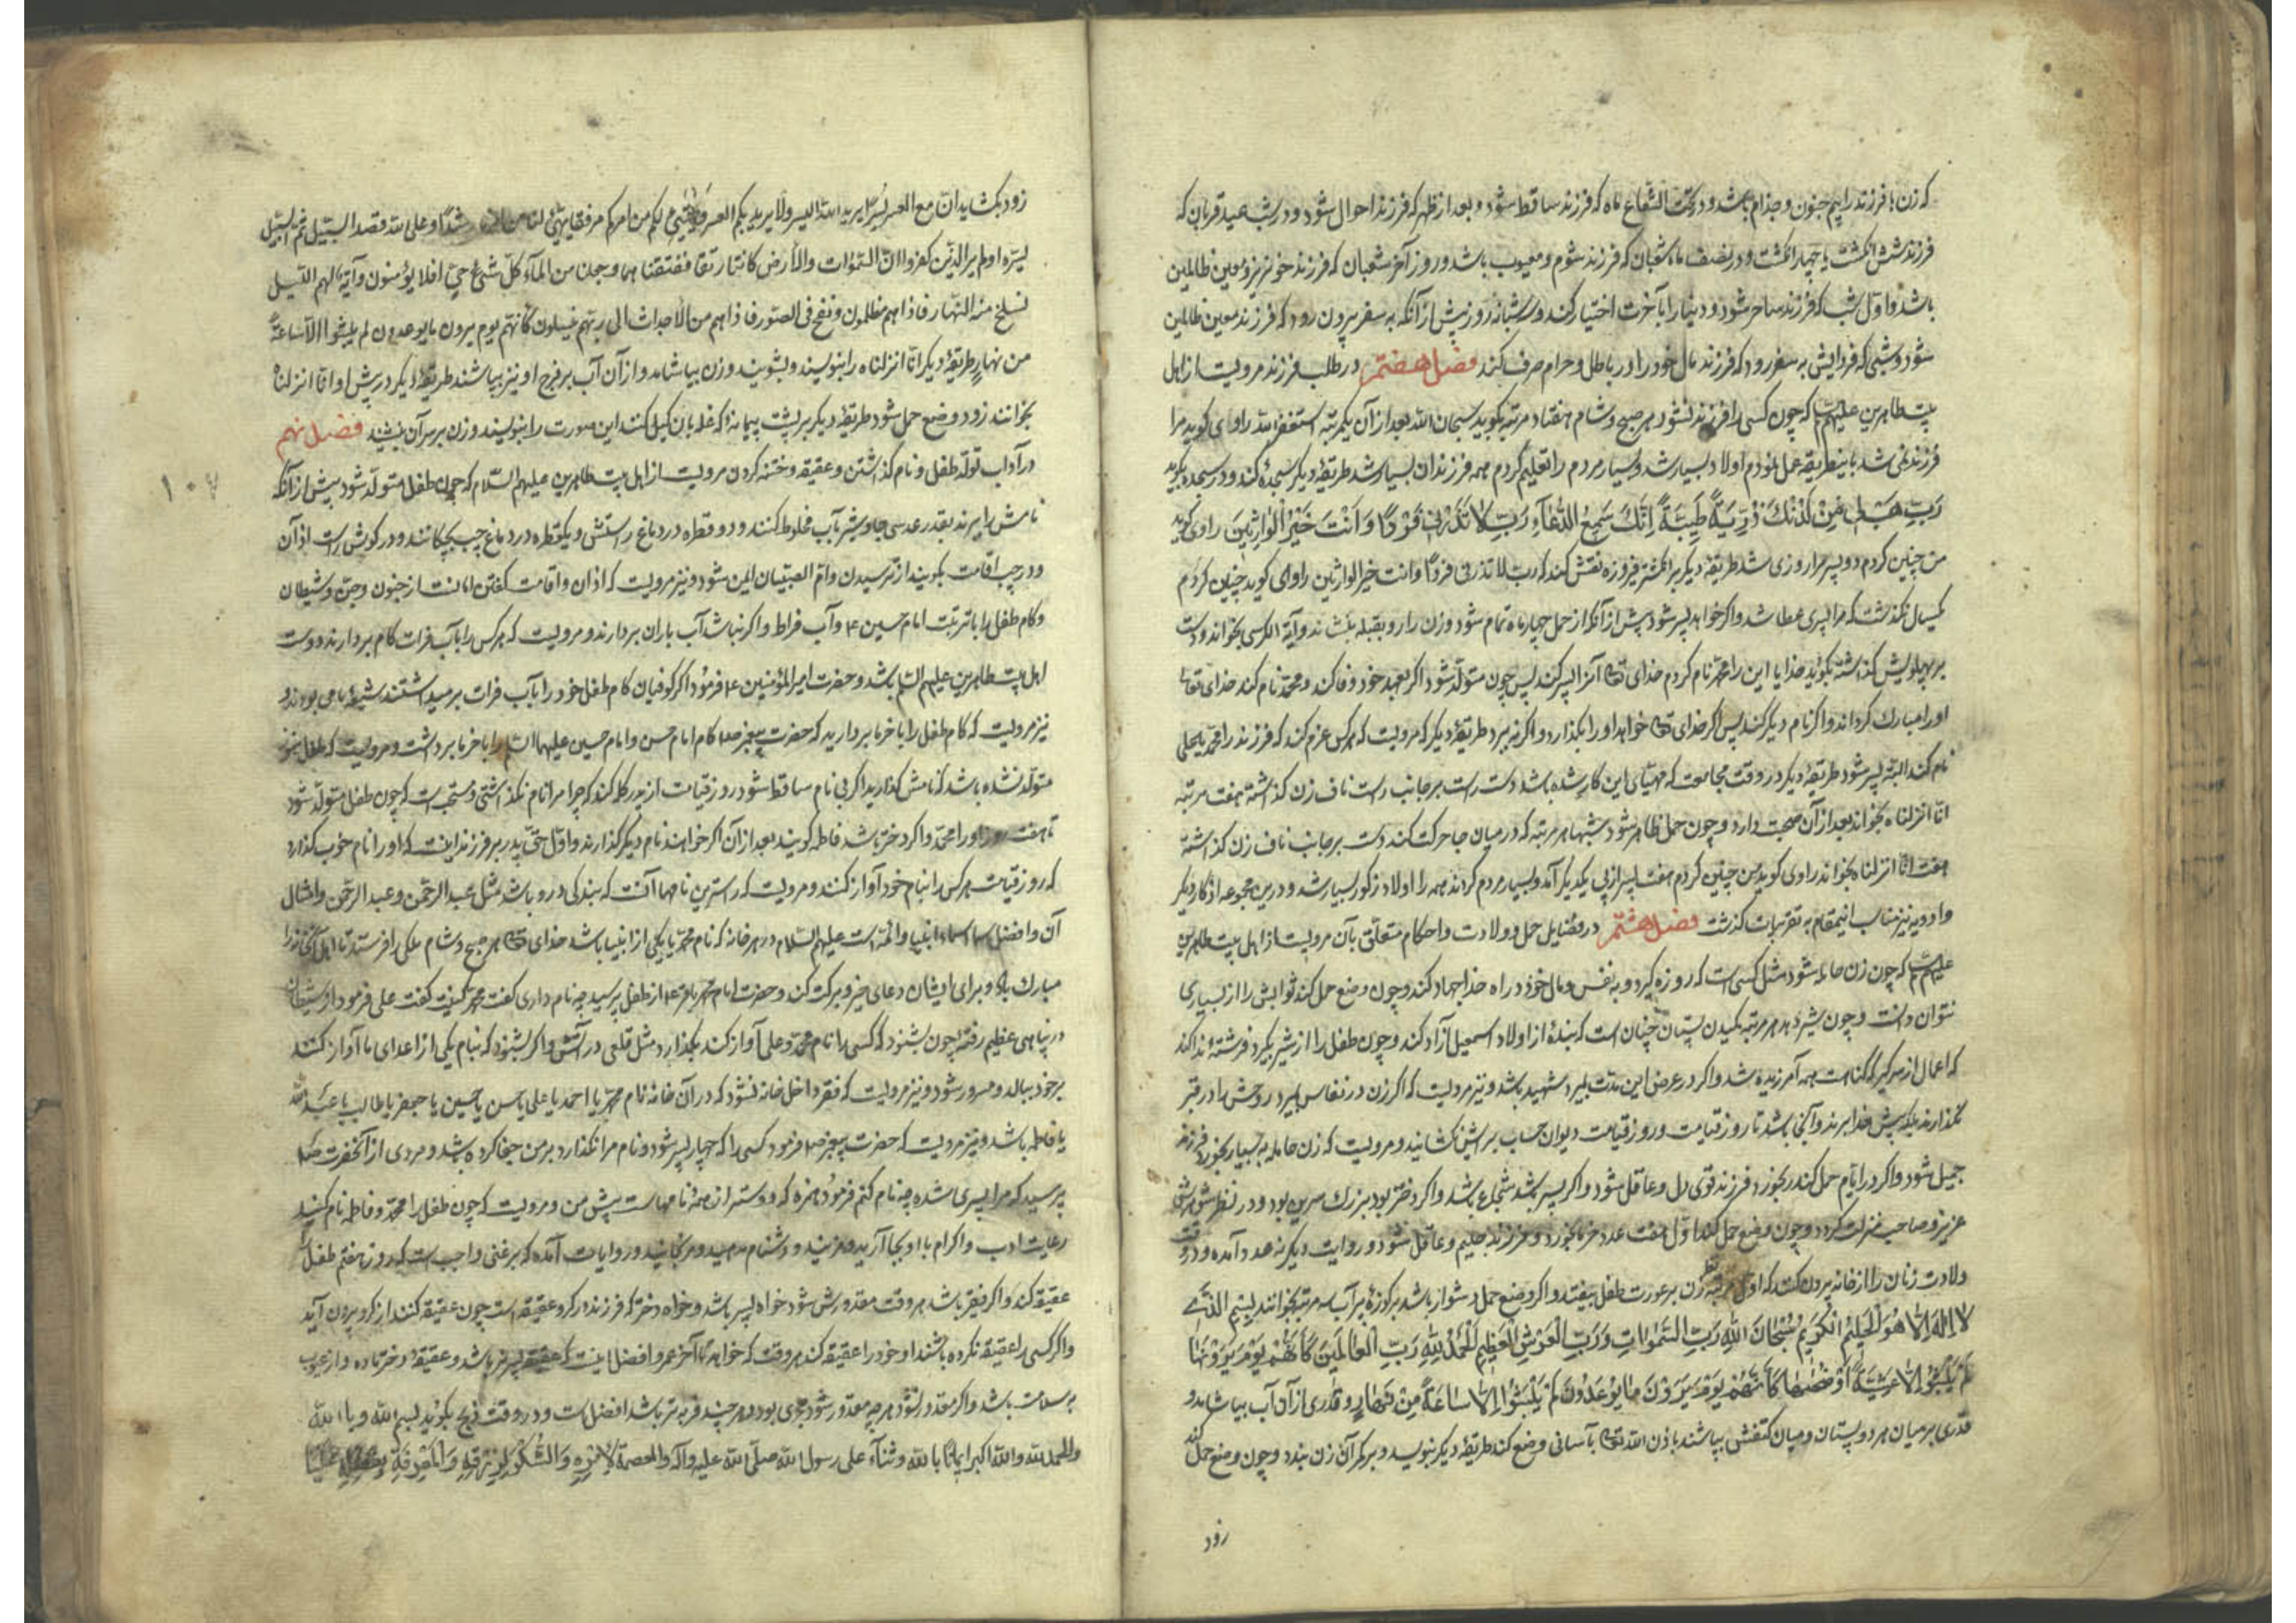 که زن با فرزند را بیم جنون و جذام باشد و در تحت الشعاع ماه که فرزند ساقط شود و بعد از ظهر که فرزند احول شود و در شب عید قربان که
فرزند شش انگشت یا چهار انگشت و در نصف ماه شعبان که فرزند شوم و معیوب باشد و روز آخر شعبان که فرزند خونریز و معین ظالمین
باشد و اول شب که فرزند ساحر شود و دنیا را بآخرت اختیار کند و در شبانه روز پیش از آنکه به سفر بیرون رود که فرزند معین ظالمین
شود و شبی که فردایش به سفر رود که فرزند مال خود را در باطل و حرام صرف کند فصل هفتم در طلب فرزند مرویست از اهل
بیت طاهرین علیهم که چون کسی را فرزند نشود هر صبح و شام هفتاد مرتبه بگوید سبحان الله بعد از آن یکمرتبه استغفر الله راوی گوید مرا
فرزند نمی شد باینطریقه عمل نمودم اولاد بسیار شد و بسیار مردم را تعلیم کردم همه فرزندان بسیار شد طریقهٔ دیگر سجده کند و در سجده بگوید
رَبِّ هَبْ لِی مِنْ لَدُنْكَ ذُرِّیَةً طَیِّبَةً اِنَّكَ سَمِیعُ الدُّعَآءِ رَبِّ لا تَذَرْنِی فَرْدًا وَ اَنْتَ خَیْرُ الْوَارِثِینَ راوی گوید
من چنین کردم دو پسر مرا روزی شد طریقهٔ دیگر بر انگشتر فیروزه نقش کند که رب لا تذرنی فردًا وانت خیر الوارثین راوی گوید چنین کردم
یکسال نگذشت که مرا پسری عطا شد و اگر خواهد پسر شود پیش از آنکه از حمل چهار ماه تمام شود و زن را رو بقبله بنشاند و آیة الکرسی بخواند و دست
بر پهلویش گذاشته بگوید خدایا این را محمد نام کردم خدای تع آنرا پسر کند پس چون متولد شود اگر بعهد خود وفا کند و محمد نام کند خدای تعالی
او را مبارک گرداند و اگر نام دیگر کند پس اگر خدای تع خواهد او را بگذارد و اگر نه ببرد طریقهٔ دیگر که مرویست که هر کس عزم کند که فرزند را محمد یا علی
نام کند البته پسر شود طریقهٔ دیگر در وقت مجامعت که مهیای این کار شده باشد دست راست بر جانب راست ناف زن گذاشته هفت مرتبه
انا انزلناه بخواند بعد از آن صحبت دارد و چون حمل ظاهر شود شبها هر مرتبه که در میان جا حرکت کند دست بر جانب ناف زن گذاشته
هفت انا انزلناه بخواند راوی گوید من چنین کردم هفت پسر از پی یکدیگر آمد و بسیار مردم کردند همه را اولاد ذکور بسیار شد و درین مجموعه اذکار دیگر
و ادویه نیز مناسب اینمقام به تقریبات گذشت فصل هشتم در فضایل حمل و ولادت و احکام متعلق بآن مرویست از اهل بیت طاهرین
علیهم که چون زن حامله شود مثل کسی است که روزه گیرد و به نفس و مال خود در راه خدا جهاد کند و چون وضع حمل کند ثوابش را از بسیاری
نتوان دانست و چون شیر دهد هر مرتبه مکیدن پستان چنان است که بندهٔ از اولاد اسمعیل آزاد کند و چون طفل را از شیر بگیرد فرشتهٔ ندا کند
که اعمال از سر گیر که گناهت همه آمرزیده شد و اگر در عرض این مدت بمیرد شهید باشد و نیز مرویست که اگر زن در نفاس بمیرد روحش را در قبر
نگذارند بلکه پیش خدا برند و آنجا باشد تا روز قیامت و روز قیامت دیوان حساب برایش نگشایند و مرویست که زن حامله به بسیار بخورد فرزند
جمیل شود و اگر در ایام حمل کندر بخورد فرزند قوی دل و عاقل شود و اگر پسر باشد شجاع باشد و اگر دختر بود بزرگ سرین بود و در نظر شوهرش
عزیز و صاحب منزلت گردد و چون وضع حمل کند اول هفت عدد خرما بخورد و فرزند حلیم و عاقل شود و در روایت دیگر نه عدد آمده و در وقت
ولادت زنان را از خانه بیرون کنند که اول مرتبه نظر زن بر عورت طفل نیفتد و اگر وضع حمل دشوار باشد بر کوزهٔ پر آب سه مرتبه بخوانند بسم الله
لا اِلهَ اِلاّ هُوَ الْحَلِیمُ الْکَرِیمُ سُبْحَانَ اللهِ رَبِّ السَّمَوَاتِ وَ رَبِّ الْعَرْشِ الْعَظِیمِ اَلْحَمْدُ لِلّهِ رَبِّ الْعَالَمِینَ کَاَنَّهُمْ یَوْمَ یَرَوْنَهَا
لَمْ یَلْبَثُوا اِلاّ عَشِیَّةً اَوْ ضُحٰیهَا کَاَنَّهُمْ یَوْمَ یَرَوْنَ مَا یُوعَدُونَ لَمْ یَلْبَثُوا اِلاّ سَاعَةً مِنْ نَهَارٍ و قدری از آن آب بیاشامد و
قدری بر میان هر دو پستان و میان کتفش بپاشند باذن الله تع بآسانی وضع کند طریقهٔ دیگر بنویسد و بر کمر آن زن بندد و چون وضع حمل کند
زود
زود بگشاید ان مع العسر یسرًا یرید الله بکم الیسر ولا یرید بکم العسر ویهیئ لکم من امرکم مرفقا وهیئ لنا من امرنا رشدًا وعلی الله قصد السبیل ثم السبیل
یسّره اولم یر الذین کفروا ان السموات والارض کانتا رتقا ففتقناهما وجعلنا من المآء کلّ شیء حیّ افلا یؤمنون وآیة لهم اللیل
نسلخ منه النهار فاذا هم مظلمون ونفخ فی الصور فاذا هم من الاجداث الی ربهم ینسلون کانهم یوم یرون ما یوعدون لم یلبثوا الا ساعة
من نهارٍ طریقهٔ دیگر انا انزلناه را بنویسند و بشویند و زن بیاشامد و از آن آب بر فرج او نیز بپاشند طریقهٔ دیگر در پیش او انا انزلناه
بخوانند زود وضع حمل شود طریقهٔ دیگر بر پشت پیمانهٔ که غله بان کیل کنند این سورت را بنویسند و زن بر سر آن نشیند فصل نهم
در آداب تولد طفل و نام گذاشتن و عقیقه و ختنه کردن مرویست از اهل بیت طاهرین علیهم السلام که چون طفل متولد شود پیش از آنکه
نافش را ببرند بقدر عدسی جاوشیر بآب مخلوط کنند و دو قطره در دماغ راستش و یکقطره در دماغ چپ بچکانند و در گوش راست اذان
و در چپ اقامت بگویند از ترسیدن و ام الصبیان ایمن شود و نیز مرویست که اذان و اقامت گفتن امانست از جنون و جن و شیطان
و کام طفل را با تربت امام حسین ع و آب فراط و اگر نباشد آب باران بردارند و مرویست که هر کس را بآب فرات کام بردارند دوست
اهل بیت طاهرین علیهم السلم باشد و حضرت امیر المؤمنین ع فرمود اگر کوفیان کام طفل خود را بآب فرات برمیداشتند شیعهٔ ما می بودند و
نیز مرویست که کام طفل را با خرما بردارید که حضرت پیغمبر صلعم کام امام حسن و امام حسین علیهما السلم را با خرما برداشت و مرویست که طفل هنوز
متولد نشده باشد که نامش گذارید اگر بی نام ساقط شود روز قیامت از پدر گله کند که چرا مرا نام نگذاشتی و مستحب است که چون طفل متولد شود
تا هفت روز او را محمد و اگر دختر باشد فاطمه گویند بعد از آن اگر خواهند نام دیگر گذارند و اول حق پدر بر فرزند اینست که او را نام خوب گذارد
که روز قیامت هر کس را بنام خود آواز کنند و مرویست که راسترین نامها آنست که بندگی در و باشد مثل عبد الرحمن و عبد الرحمن و امثال
آن و افضل اسما اسماء انبیا و ائمه است علیهم السلام در هر خانه که نام محمد یا یکی از انبیا باشد خدای تع هر صبح و شام ملکی را فرستد تا اهل آنخانه را
مبارک باد و برای ایشان دعای خیر و برکت کند و حضرت امام محمد باقر ع از طفل پرسید چه نام داری گفت محمد کنیت گفت علی فرمود از شیطان
در پناهی عظیم رفتهٔ چون بشنود که کسی را نام محمد و علی آواز کند بگدازد مثل قلعی در آتش و اگر بشنود که بنام یکی از اعدای ما آواز کنند
بر خود ببالد و مسرور شود و نیز مرویست که فقر داخل خانه نشود که در آن خانه نام محمد یا احمد یا علی یا حسن یا حسین یا جعفر یا طالب یا عبد الله
یا فاطمه باشد و نیز مرویست که حضرت پیغمبر صلعم فرمود کسی را که چهار پسر شود و نام مرا نگذارد بر من جفا کرده باشد و مردی از آنحضرت صلعم
پرسید که مرا پسری شده چه نام کنم فرمود حمزه که دوسترا از همهٔ نامهاست پیش من و مرویست که چون طفل را محمد و فاطمه نام کنید
رعایت ادب و اکرام با او بجا آرید و مزنید و دشنام مدهید و مرنجانید و در روایات آمده که بر غنی واجب است که روز هفتم طفل را
عقیقه کند و اگر فقیر باشد هر وقت مقدورش شود خواه پسر باشد و خواه دختر که فرزند در گرو عقیقه است چون عقیقه کنند از گرو بیرون آید
و اگر کسی را عقیقه نکرده باشند او خود را عقیقه کند هر وقت که خواهد تا آخر عمر و افضل اینست که عقیقهٔ پسر نر باشد و عقیقهٔ دختر ماده و از عیوب
به سلامت باشد و اگر مقدور نشود هر چه مقدور شود مجزی بود و هر چند فربه تر باشد افضل است و در وقت ذبح بگوید بسم الله و بالله
والحمد لله والله اکبر ایمانًا بالله وثناءً علی رسول الله صلی الله علیه وآله والعصمة لامره وَالشُّکْرُ لِرِزْقِهِ وَالْمَعْرِفَةِ بِفَضْلِهِ عَلَیْنَا
۱۰۷